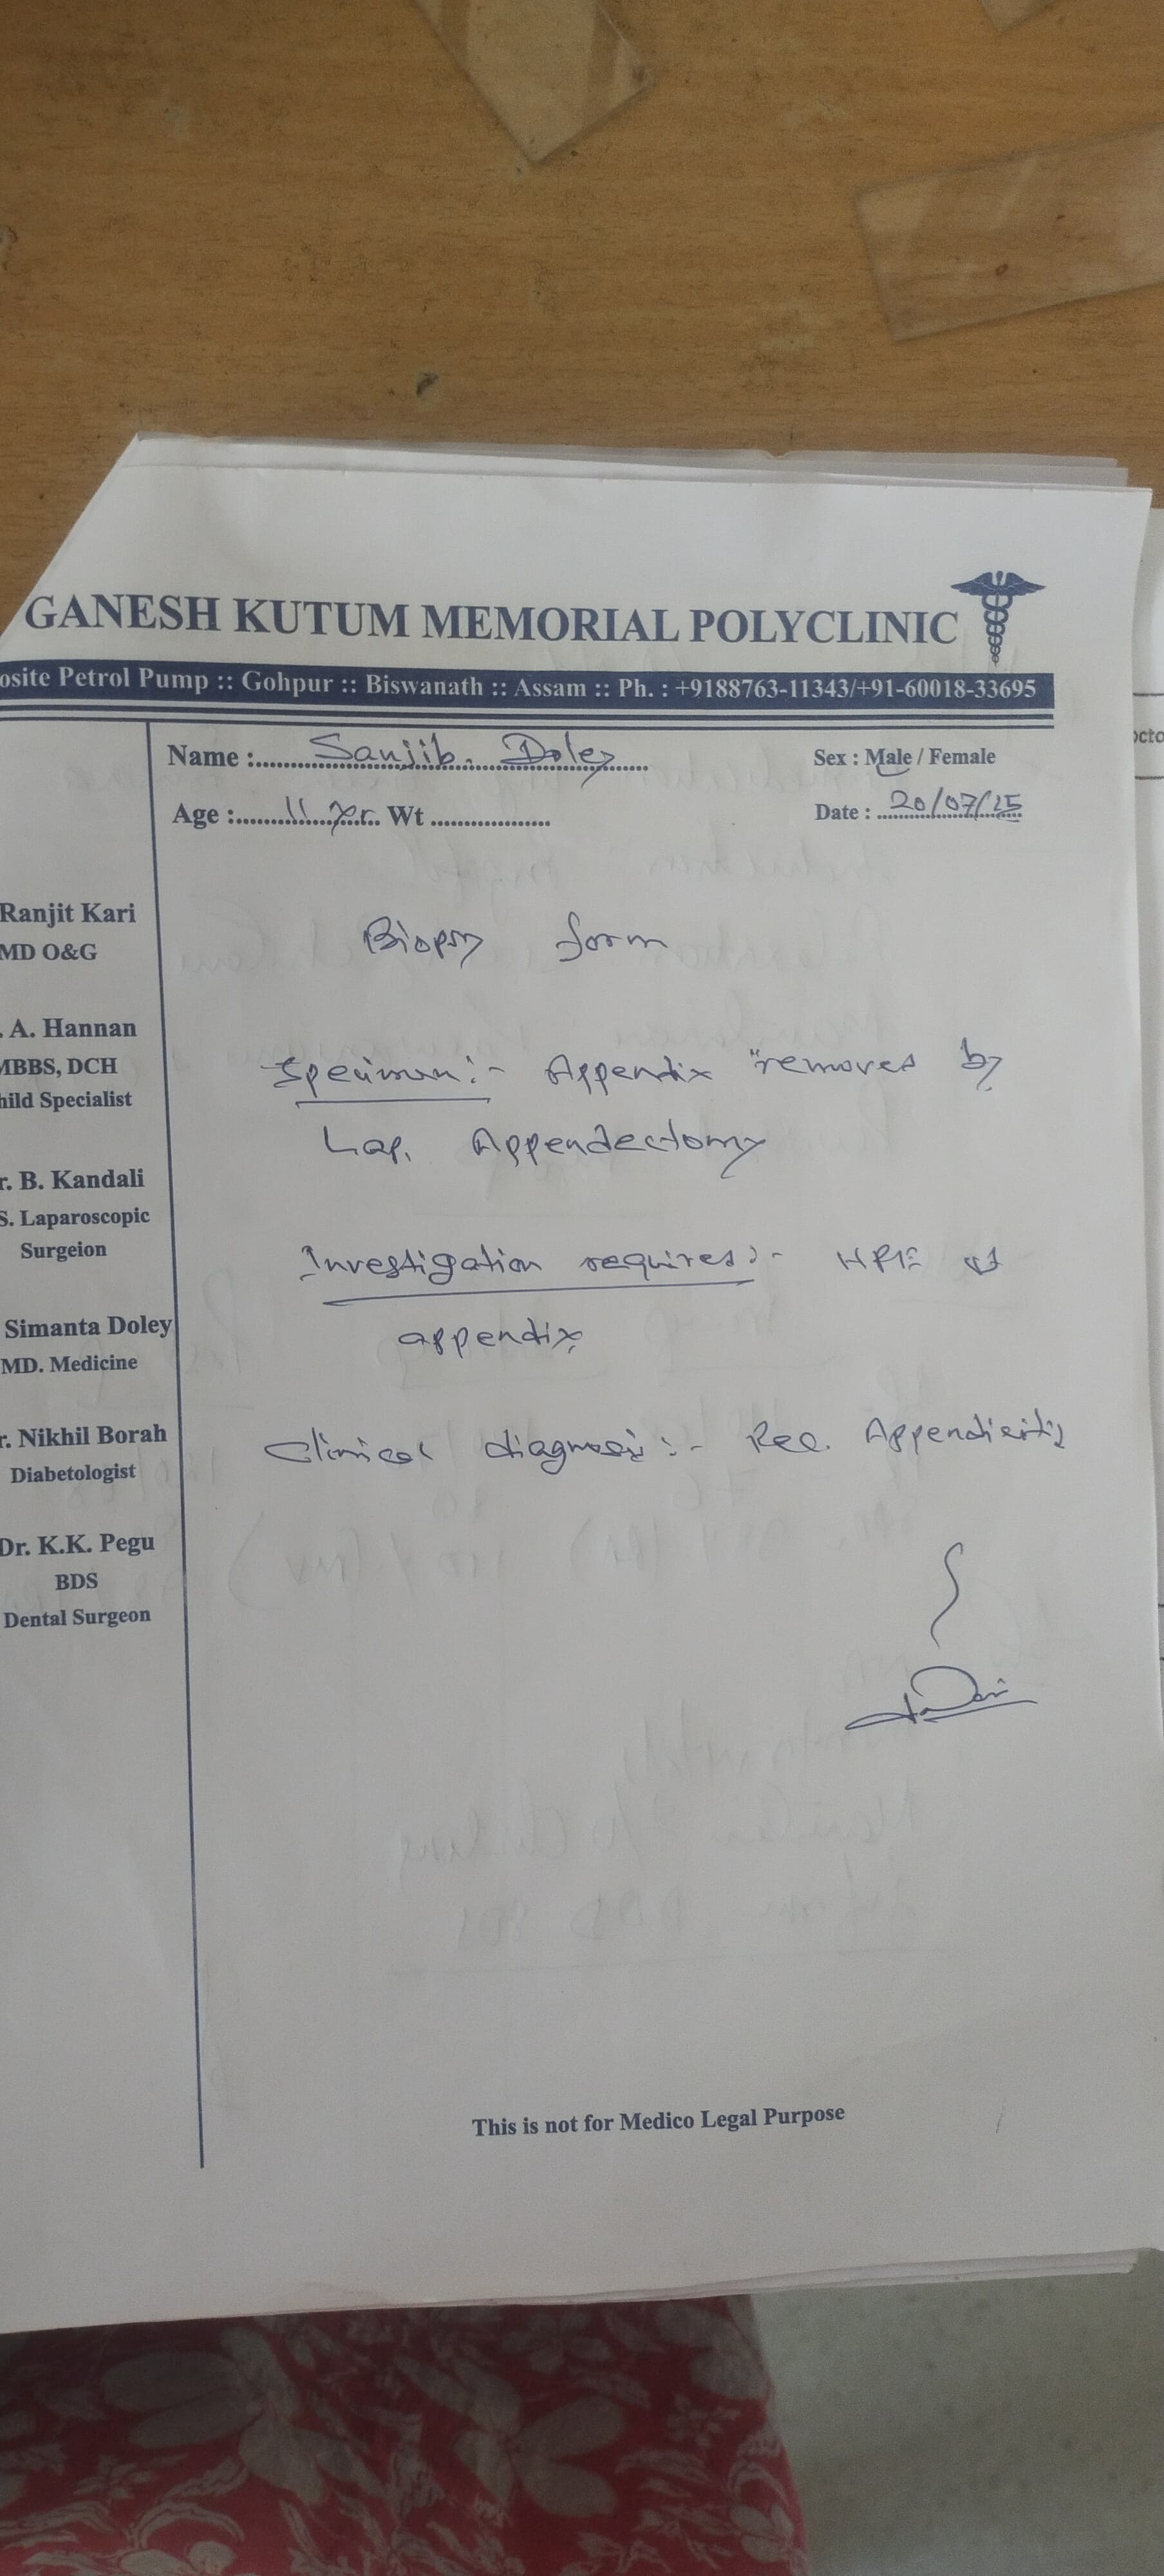 GANESH KUTUM MEMORIAL POLYCLINIC
osite Petrol Pump :: Gohpur :: Biswanath :: Assam :: Ph. : +9188763-11343/+91-60018-33695
Name :..... Sanjib. Doley
Sex : Male / Female
Age :..... 11 yr. Wt ..........
Date : 20/07/25
Ranjit Kari
MD O&G
. A. Hannan
MBBS, DCH
hild Specialist
r. B. Kandali
S. Laparoscopic
Surgeion
Simanta Doley
MD. Medicine
r. Nikhil Borah
Diabetologist
Dr. K.K. Pegu
BDS
Dental Surgeon
Biopsy form
Specimen:- Appendix removes by
Lap. Appendectomy
Investigation requires:- HPE of
appendix
Clinical diagnosis:- Rec. Appendicitis
This is not for Medico Legal Purpose
octo